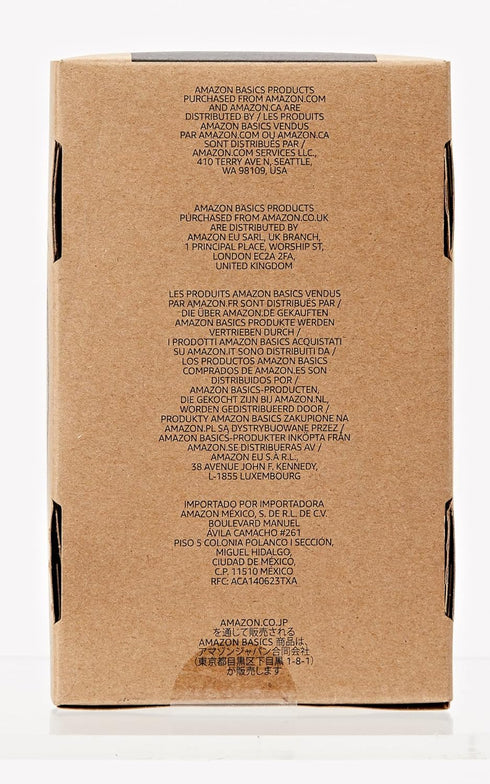 AMAZON BASICS PRODUCTS
PURCHASED FROM AMAZON.COM
AND AMAZON.CA ARE
DISTRIBUTED BY / LES PRODUITS
AMAZON BASICS VENDUS
PAR AMAZON.COM OU AMAZON.CA
SONT DISTRIBUÉS PAR /
AMAZON.COM SERVICES LLC.,
410 TERRY AVE N, SEATTLE,
WA 98109, USA
AMAZON BASICS PRODUCTS
PURCHASED FROM AMAZON.CO.UK
ARE DISTRIBUTED BY
AMAZON EU SARL, UK BRANCH,
1 PRINCIPAL PLACE, WORSHIP ST,
LONDON EC2A 2FA,
UNITED KINGDOM
LES PRODUITS AMAZON BASICS VENDUS
PAR AMAZON.FR SONT DISTRIBUÉS PAR /
DIE ÜBER AMAZON.DE GEKAUFTEN
AMAZON BASICS PRODUKTE WERDEN
VERTRIEBEN DURCH /
I PRODOTTI AMAZON BASICS ACQUISTATI
SU AMAZON.IT SONO DISTRIBUITI DA /
LOS PRODUCTOS AMAZON BASICS
COMPRADOS DE AMAZON.ES SON
DISTRIBUIDOS POR /
AMAZON BASICS-PRODUCTEN,
DIE GEKOCHT ZIJN BIJ AMAZON.NL,
WORDEN GEDISTRIBUEERD DOOR /
PRODUKTY AMAZON BASICS ZAKUPIONE NA
AMAZON.PL SĄ DYSTRYBUOWANE PRZEZ /
AMAZON BASICS-PRODUKTER INKÖPTA FRÅN
AMAZON.SE DISTRIBUERAS AV /
AMAZON EU S.À R.L.,
38 AVENUE JOHN F. KENNEDY,
L-1855 LUXEMBOURG
IMPORTADO POR IMPORTADORA
AMAZON MÉXICO, S. DE R.L. DE C.V.
BOULEVARD MANUEL
ÁVILA CAMACHO #261
PISO 5 COLONIA POLANCO I SECCIÓN,
MIGUEL HIDALGO,
CIUDAD DE MÉXICO,
C.P. 11510 MÉXICO
RFC: ACA140623TXA
AMAZON.CO.JP
を通じて販売される
AMAZON BASICS 商品は、
アマゾンジャパン合同会社
(東京都目黒区下目黒 1-8-1)
が販売します